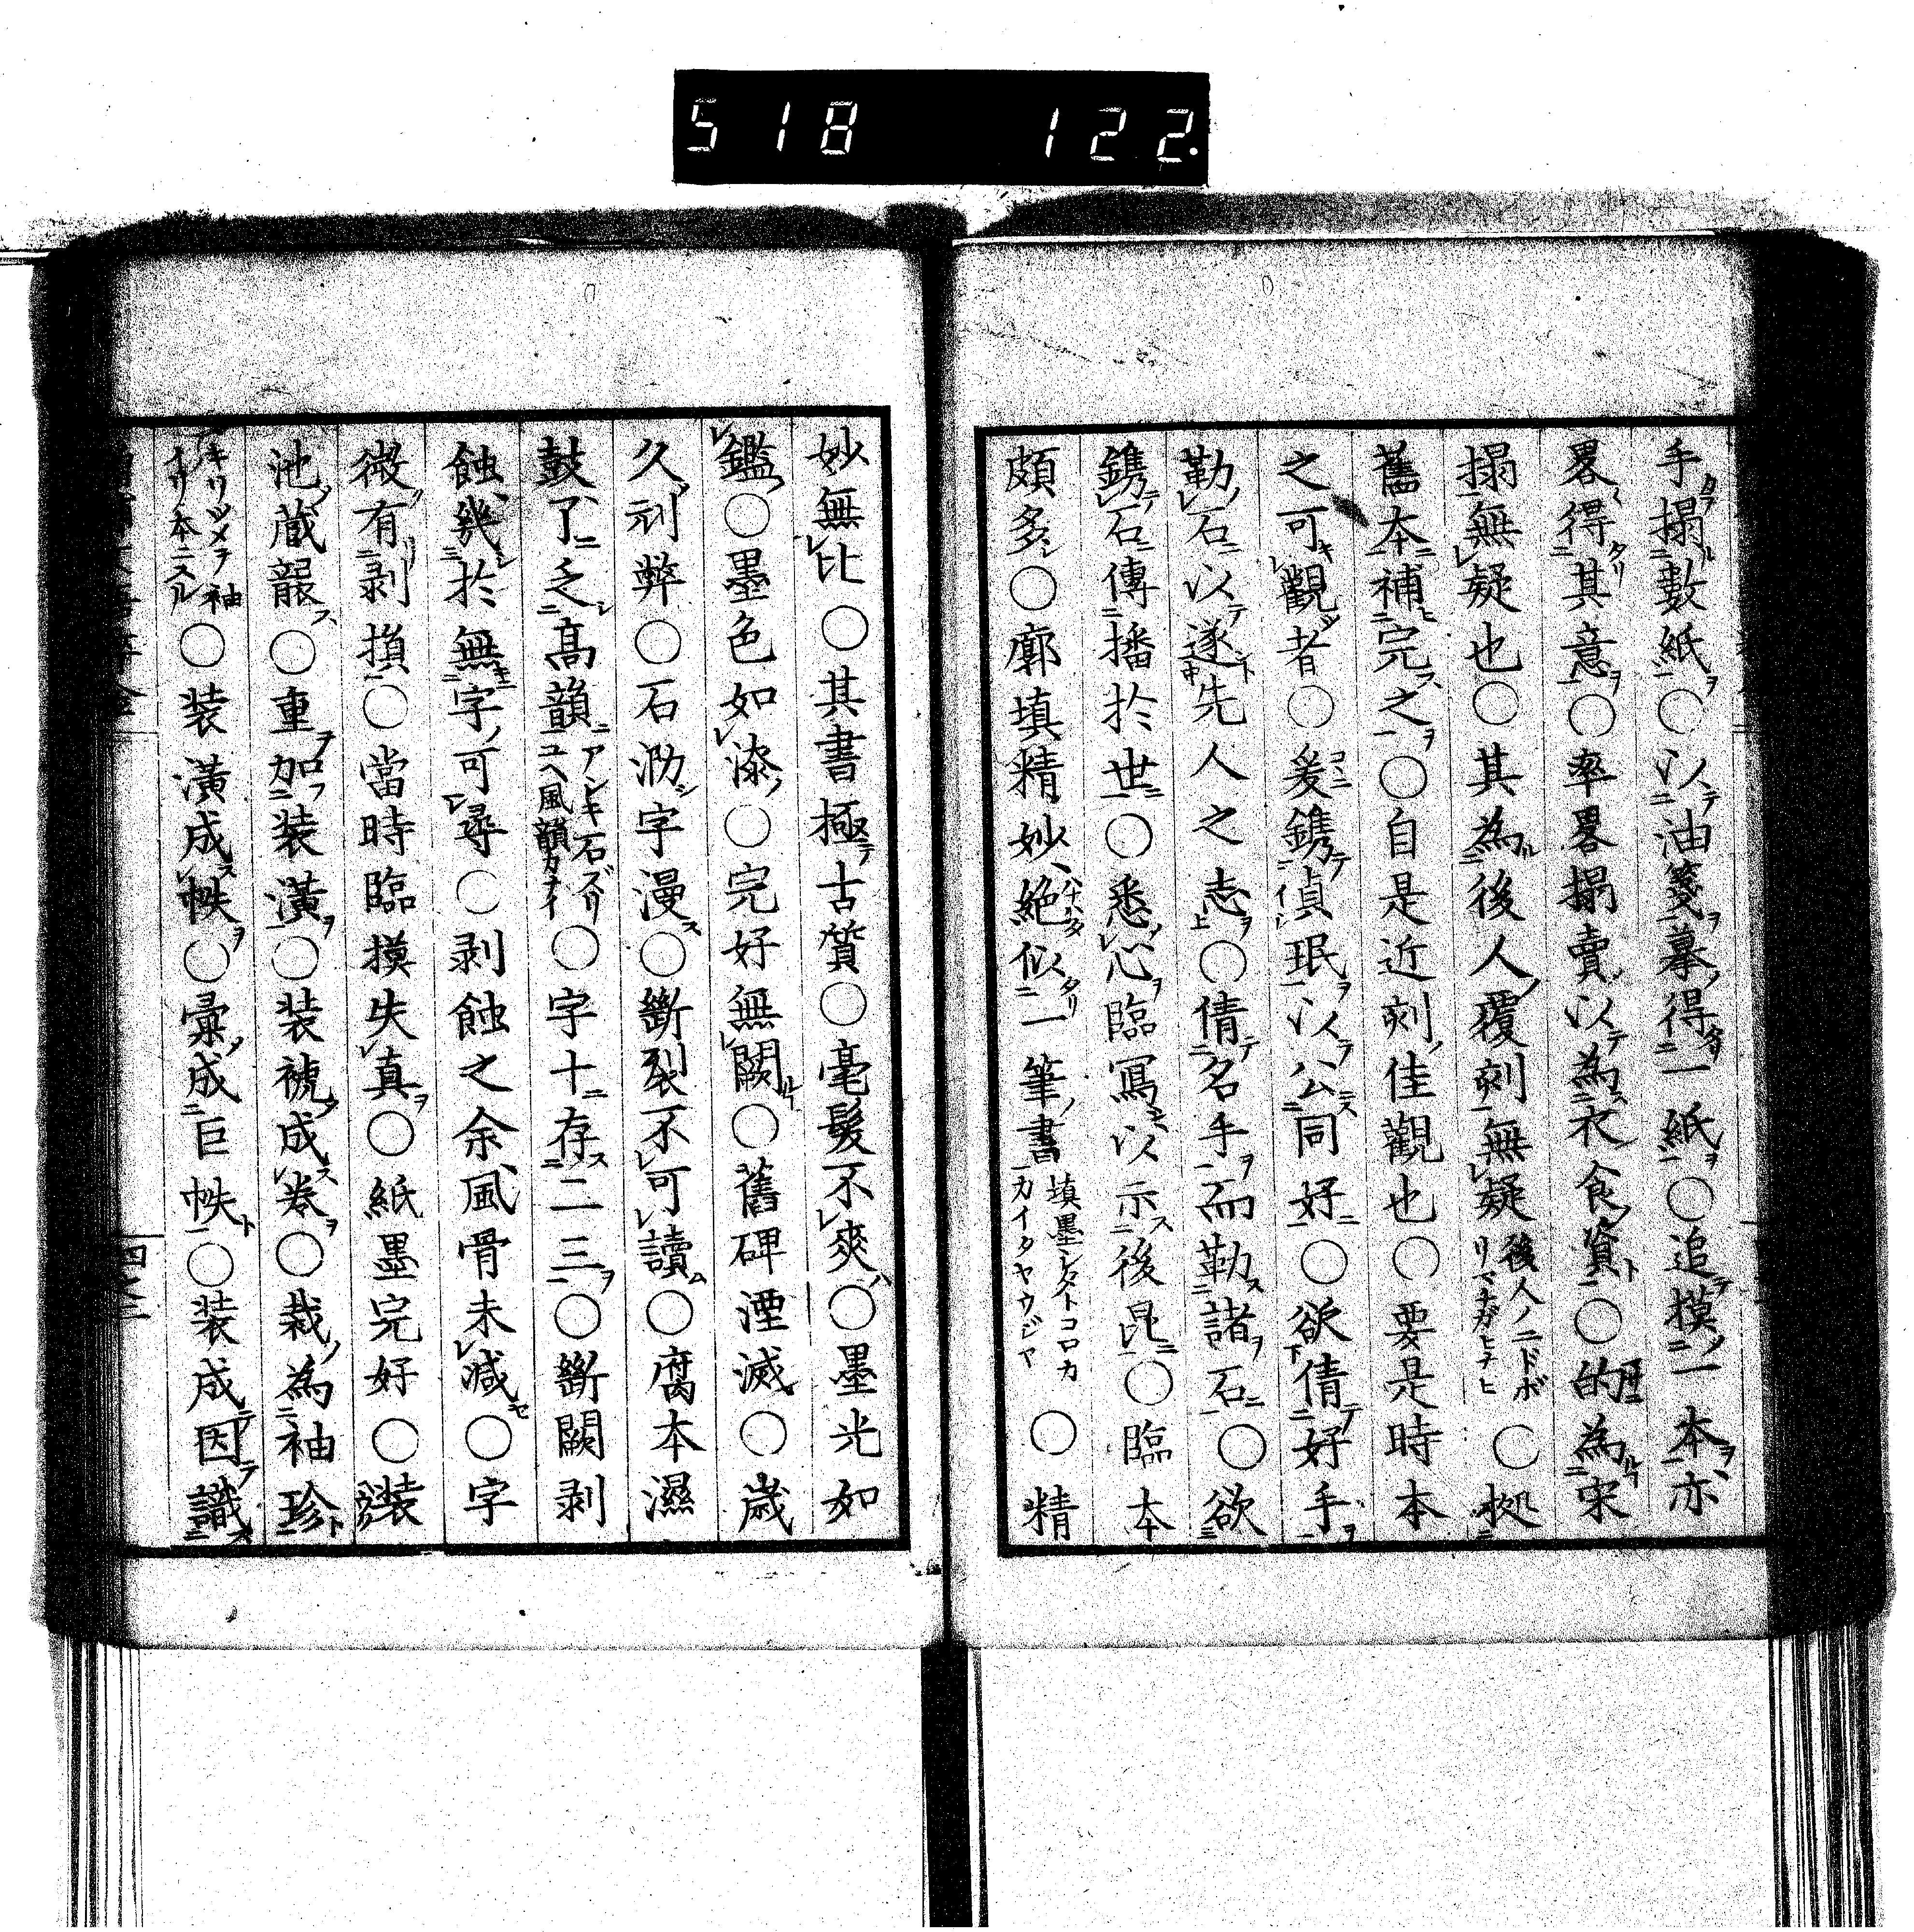 518 122
手搨數紙○以油箋摹得一紙○追摸一本亦
畧得其意○率畧搨賣以為衣食資○的為宋
搨無疑也○其為後人覆刻無疑後人ノニドボリマチガヒナヒ○拠
舊本補完之○自是近刻佳觀也○要是時本
之可觀者○爰鐫貞珉以公同好○欲倩好手
勒石以遂先人之志○倩名手而勒諸石○欲
鐫石傳播於世○悉心臨寫以示後昆○臨本
頗多○廓填精妙絶似一筆書填墨シタトコロカ一カイタヤウジヤ○精
妙無比○其書極古質○毫髮不爽○墨光如
鑑○墨色如漆○完好無闕○舊碑湮滅○歳
久刓弊○石泐字漫○斷裂不可讀○腐本濕
鼓了乏高韻アシキ石ズリユヘ風韻カナイ○字十存二三○斷闕剥
蝕幾於無字可尋○剥蝕之余風骨未減○字
微有剥損○當時臨摸失真○紙墨完好○装
池蔵龍○重加装潢○装褫成卷○裁為袖珍
キリツメヲ袖イリ本ニスル○装潢成帙○彙成巨帙○装成因識